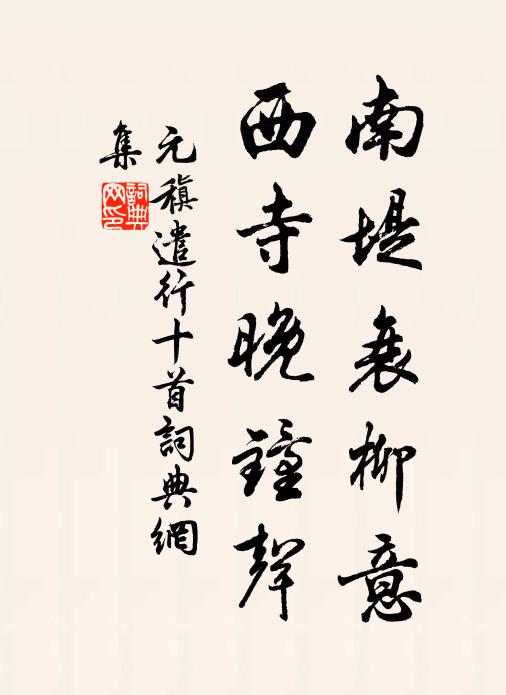 南堤衰柳意
西寺晚鐘聲
元稹遣行十首詞典網
集
詞典網印